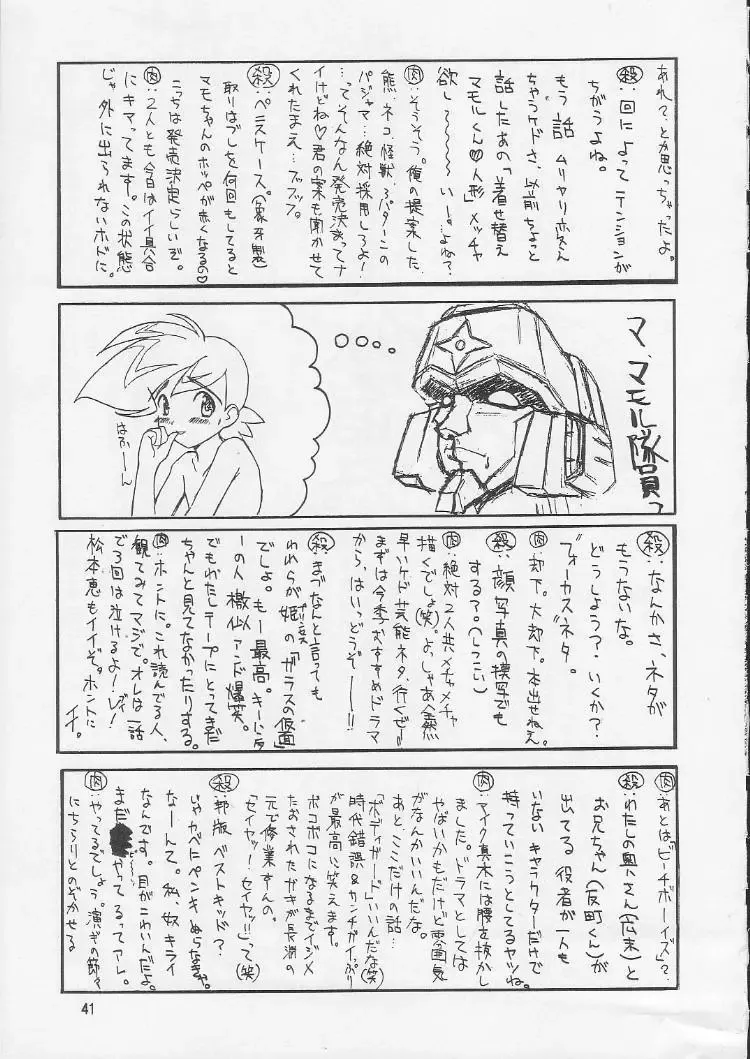 あれ?.とか思っちゃったよ。
殺:回によってテンションが
ちがうよね。
もう話 ムリヤリ変えん
ちゃうケドさ、以前ちょっと
話したあの「着せ替え
マモルくん♡人形」メッチャ
欲し〜〜〜〜い〜。…よね?
肉:そうそう。俺の提案した
熊、ネコ、怪獣、3パターンの
パジャマ…絶対採用しろよ!
…ってそんなん発売決まってナ
イけどね♡君の案も聞かせて
くれたまえ…ブッブッブ。
殺:ペニスケース。(象牙製)
取りはずしを何回もしてると
マモちゃんのホッペが赤くなるの♡
こっちは発売決定らしいぞ。
肉:2人とも今日はイイ具合
にキマってます。この状態
じゃ外に出られないホドに。
マ、マモル隊員っ
はふぅーん
殺:なんかさ、ネタが
もうないな。
どうしよう?.いくか?
"フォーカス"ネタ。
肉:却下。大却下。本出せねえ
殺:顔写真の模写でも
する?。(しつこい)
肉:絶対2人共メチャメチャ
描くでしょ(笑)。よ、しゃあ全然
早いケド芸能ネタ、行くぜー!!
まずは今季おすすめドラマ
から、はいっどうぞー——!!
殺:まづなんと言っても
われらが姫の「ガラスの仮面」
でしょ。もー最高。キードンタ
ーの人 檄似 アーンド爆笑。
でもわたしテープにとってまだ
ちゃんと見てなかったりする。
肉:ホントに。これ読んでる人、
観てみてマジで。オレは一話
で3回は泣けるよ!
松本恵もイイぞ。ホントに
イイ。
肉:あとは"ビーチボーイズ"?
殺:わたしの奥さん(広末)と
お兄ちゃん(反町くん)が
出てる 役者が一人も
いないキャラクターだけで
持っていこうとしてるヤツね。
肉:マイク真木には腰を抜かし
ました。ドラマとしては
やばいかもだけど雰囲気
がなんかいいんだな。
あと、ここだけの話…
「ボディガード」いいんだな(笑)
時代錯誤&カンチガイっぷり
が最高に笑えます。
ボコボコになるまでイジメ
たおされたガキが長渕の
元で修業すんの。
「セイヤッ!セイヤッ!!」って(笑)
殺:邦版ベストキッド?
いやカベにペンキぬらなきゃ。
なーんて。私、奴キライ
なんです。目がこわいんだよ。
まだやってるってアレ。
肉:やってるでしょう。演ギの節々
にちらりとのぞかせる
41